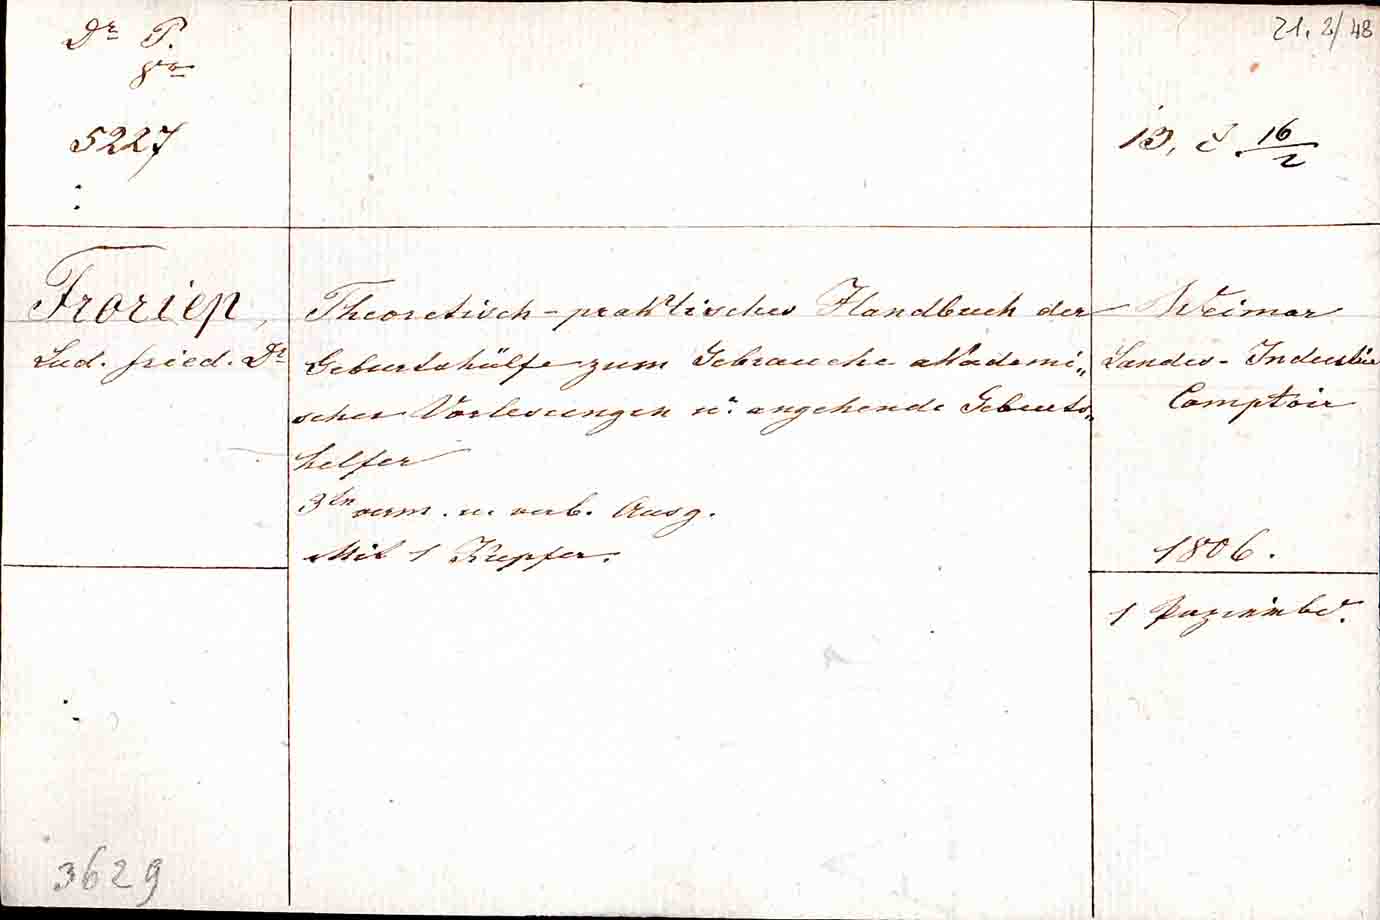 Dr P.
8vo
5227
:
21. 2/48
13, 16/2
Froriep,
Lud. fried. Dr
Theoretisch-praktisches Handbuch der
Geburtshülfe zum Gebrauche akademi„
scher Vorlesungen u. angehende Geburts„
helfer
3te verm. u. verb. Ausg.
Mit 1 Kupfer.
Weimar
Landes-Industrie
Comptoir
1806.
1
3629